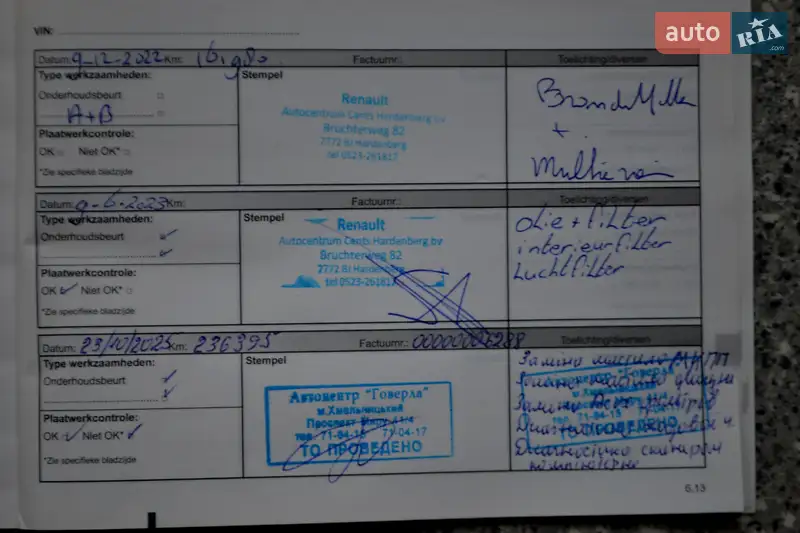 auto RIA .com
VIN:
Datum: 9-12-2022 Km: Factuurnr.: Toelichting/diversen
Type werkzaamheden: Stempel
Onderhoudsbeurt
A+B
Plaatwerkcontrole:
OK Niet OK*
*Zie specifieke bladzijde
Renault
Autocentrum Cents Hardenberg bv
Bruchterweg 82
7772 BJ Hardenberg
tel 0523-261817
+
Datum: 9-6-2023 Km: Factuurnr.: Toelichting/diversen
Type werkzaamheden: Stempel
Onderhoudsbeurt
Plaatwerkcontrole:
OK Niet OK*
*Zie specifieke bladzijde
Renault
Autocentrum Cents Hardenberg bv
Bruchterweg 82
7772 BJ Hardenberg
tel 0523-26181
olie + filter
interieurfilter
Luchtfilter
Datum: 23/10/2025 Km: 236395 Factuurnr.: Toelichting/diversen
Type werkzaamheden: Stempel
Onderhoudsbeurt
Plaatwerkcontrole:
OK Niet OK*
*Zie specifieke bladzijde
Автоцентр "Говерла"
м.Хмельницький
Проспект Миру
тел. 71-84-15 71-04-17
ТО ПРОВЕДЕНО
Заміна мастила МКПП
Заміна
Діагностика
Діагностика сканером
6.13